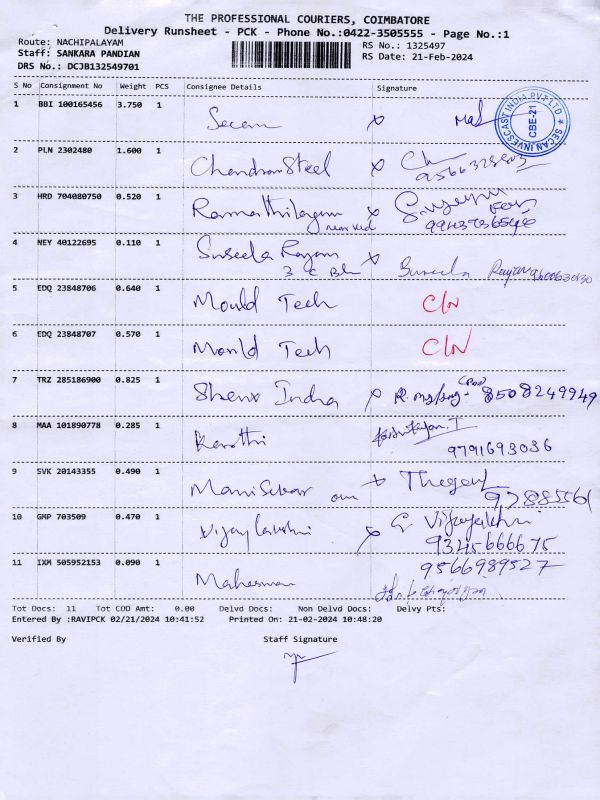 THE PROFESSIONAL COURIERS, COIMBATORE
Delivery Runsheet - PCK - Phone No.:0422-3505555 - Page No.:1
Route: NACHIPALAYAM
Staff: SANKARA PANDIAN
DRS No.: DCJB132549701
RS No.: 1325497
RS Date: 21-Feb-2024
S No Consignment No Weight PCS Consignee Details Signature
1 BBI 100165456 3.750 1 Secan x
SECAN INVESCAST INDIA PVT LTD CBE-21
2 PLN 2302480 1.600 1 Chandran Steel x
3 HRD 704080750 0.520 1 x
4 NEY 40122695 0.110 1 Suseela Rayan x Suseela Rayan 9600630130
3 C
5 EDQ 23848706 0.640 1 Mould Tech C/N
6 EDQ 23848707 0.570 1 Mould Tech C/N
7 TRZ 285186900 0.825 1 x 8508249949
8 MAA 101890778 0.285 1
9791693036
9 SVK 20143355 0.490 1 x
10 GMP 703509 0.470 1 x
9345666675
11 IXM 505952153 0.090 1 9566989527
Tot Docs: 11 Tot COD Amt: 0.00 Delvd Docs: Non Delvd Docs: Delvy Pts:
Entered By :RAVIPCK 02/21/2024 10:41:52 Printed On: 21-02-2024 10:48:20
Verified By Staff Signature